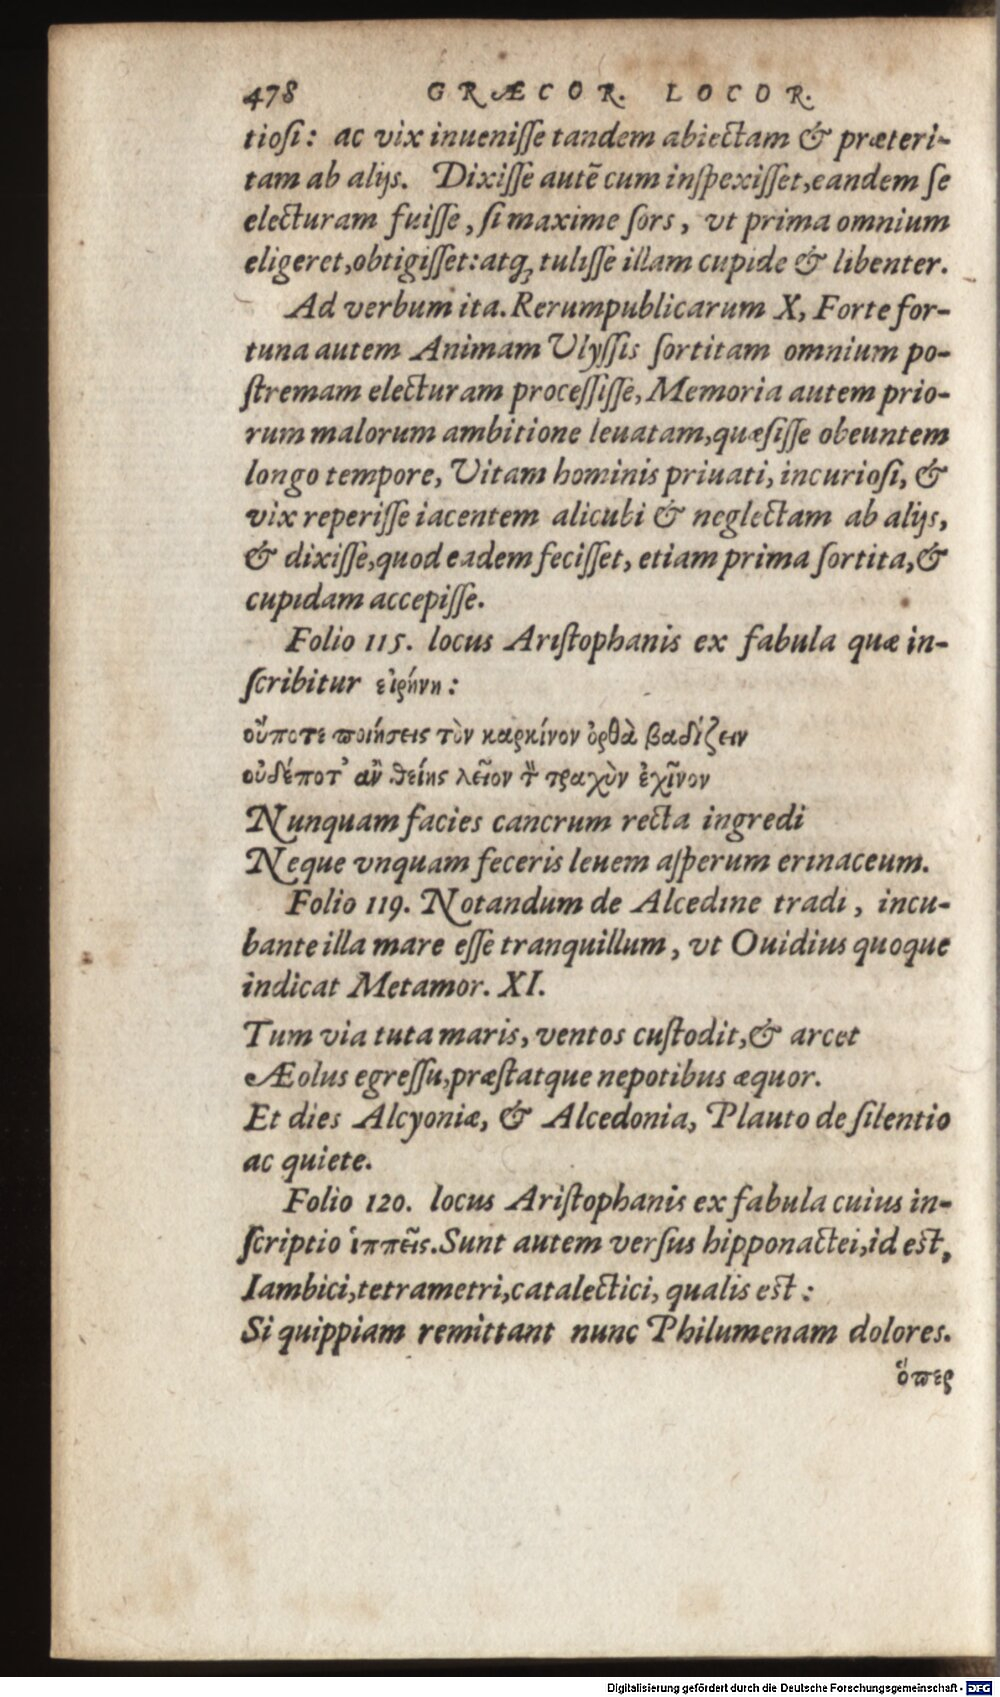 478 GRÆCOR. LOCOR.
tiosi: ac vix inuenisse tandem abiectam & præteri-
tam ab alijs. Dixisse autē cum inspexisset, eandem se
electuram fuisse, si maxime sors, vt prima omnium
eligeret, obtigisset: atq; tulisse illam cupide & libenter.
Ad verbum ita. Rerumpublicarum X, Forte for-
tuna autem Animam Vlyssis sortitam omnium po-
stremam electuram processisse, Memoria autem prio-
rum malorum ambitione leuatam, quæsisse obeuntem
longo tempore, Vitam hominis priuati, incuriosi, &
vix reperisse iacentem alicubi & neglectam ab alijs,
& dixisse, quod eadem fecisset, etiam prima sortita, &
cupidam accepisse.
Folio 115. locus Aristophanis ex fabula quæ in-
scribitur εἰρήνη:
οὔποτε ποιήσεις τὸν καρκίνον ὀρθὰ βαδίζειν
οὐδέποτ' ἂν θείης λεῖον τὸν τραχὺν ἐχῖνον
Nunquam facies cancrum recta ingredi
Neque vnquam feceris leuem asperum erinaceum.
Folio 119. Notandum de Alcedine tradi, incu-
bante illa mare esse tranquillum, vt Ouidius quoque
indicat Metamor. XI.
Tum via tuta maris, ventos custodit, & arcet
Æolus egressu, præstatque nepotibus æquor.
Et dies Alcyoniæ, & Alcedonia, Plauto de silentio
ac quiete.
Folio 120. locus Aristophanis ex fabula cuius in-
scriptio ἱππεῖς. Sunt autem versus hipponactei, id est,
Iambici, tetrametri, catalectici, qualis est:
Si quippiam remittant nunc Philumenam dolores.
ὅπερ
Digitalisierung gefördert durch die Deutsche Forschungsgemeinschaft - DFG